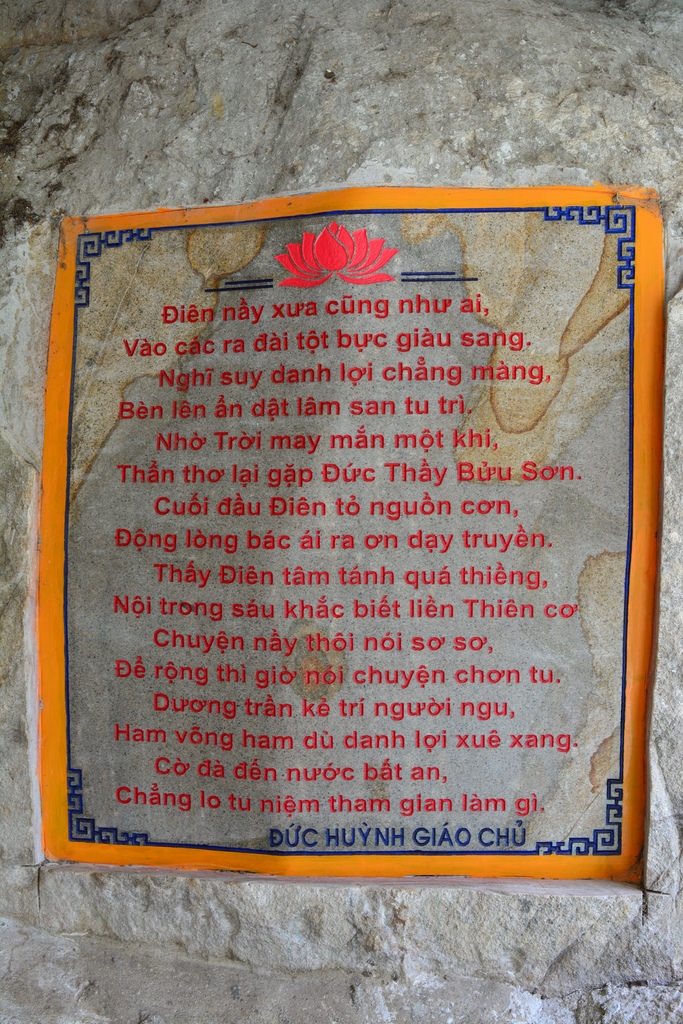 Điên nầy xưa cũng như ai,
Vào các ra đài tột bực giàu sang.
Nghĩ suy danh lợi chẳng màng,
Bèn lên ẩn dật lâm san tu trì.
Nhờ Trời may mắn một khi,
Thẩn thơ lại gặp Đức Thầy Bửu Sơn.
Cuối đầu Điên tỏ nguồn cơn,
Động lòng bác ái ra ơn dạy truyền.
Thấy Điên tâm tánh quá thiềng,
Nội trong sáu khắc biết liền Thiên cơ
Chuyện nầy thôi nói sơ sơ,
Để rộng thì giờ nói chuyện chơn tu.
Dương trần kẻ trí người ngu,
Ham võng ham dù danh lợi xuê xang.
Cờ đà đến nước bất an,
Chẳng lo tu niệm tham gian làm gì.
ĐỨC HUỲNH GIÁO CHỦ